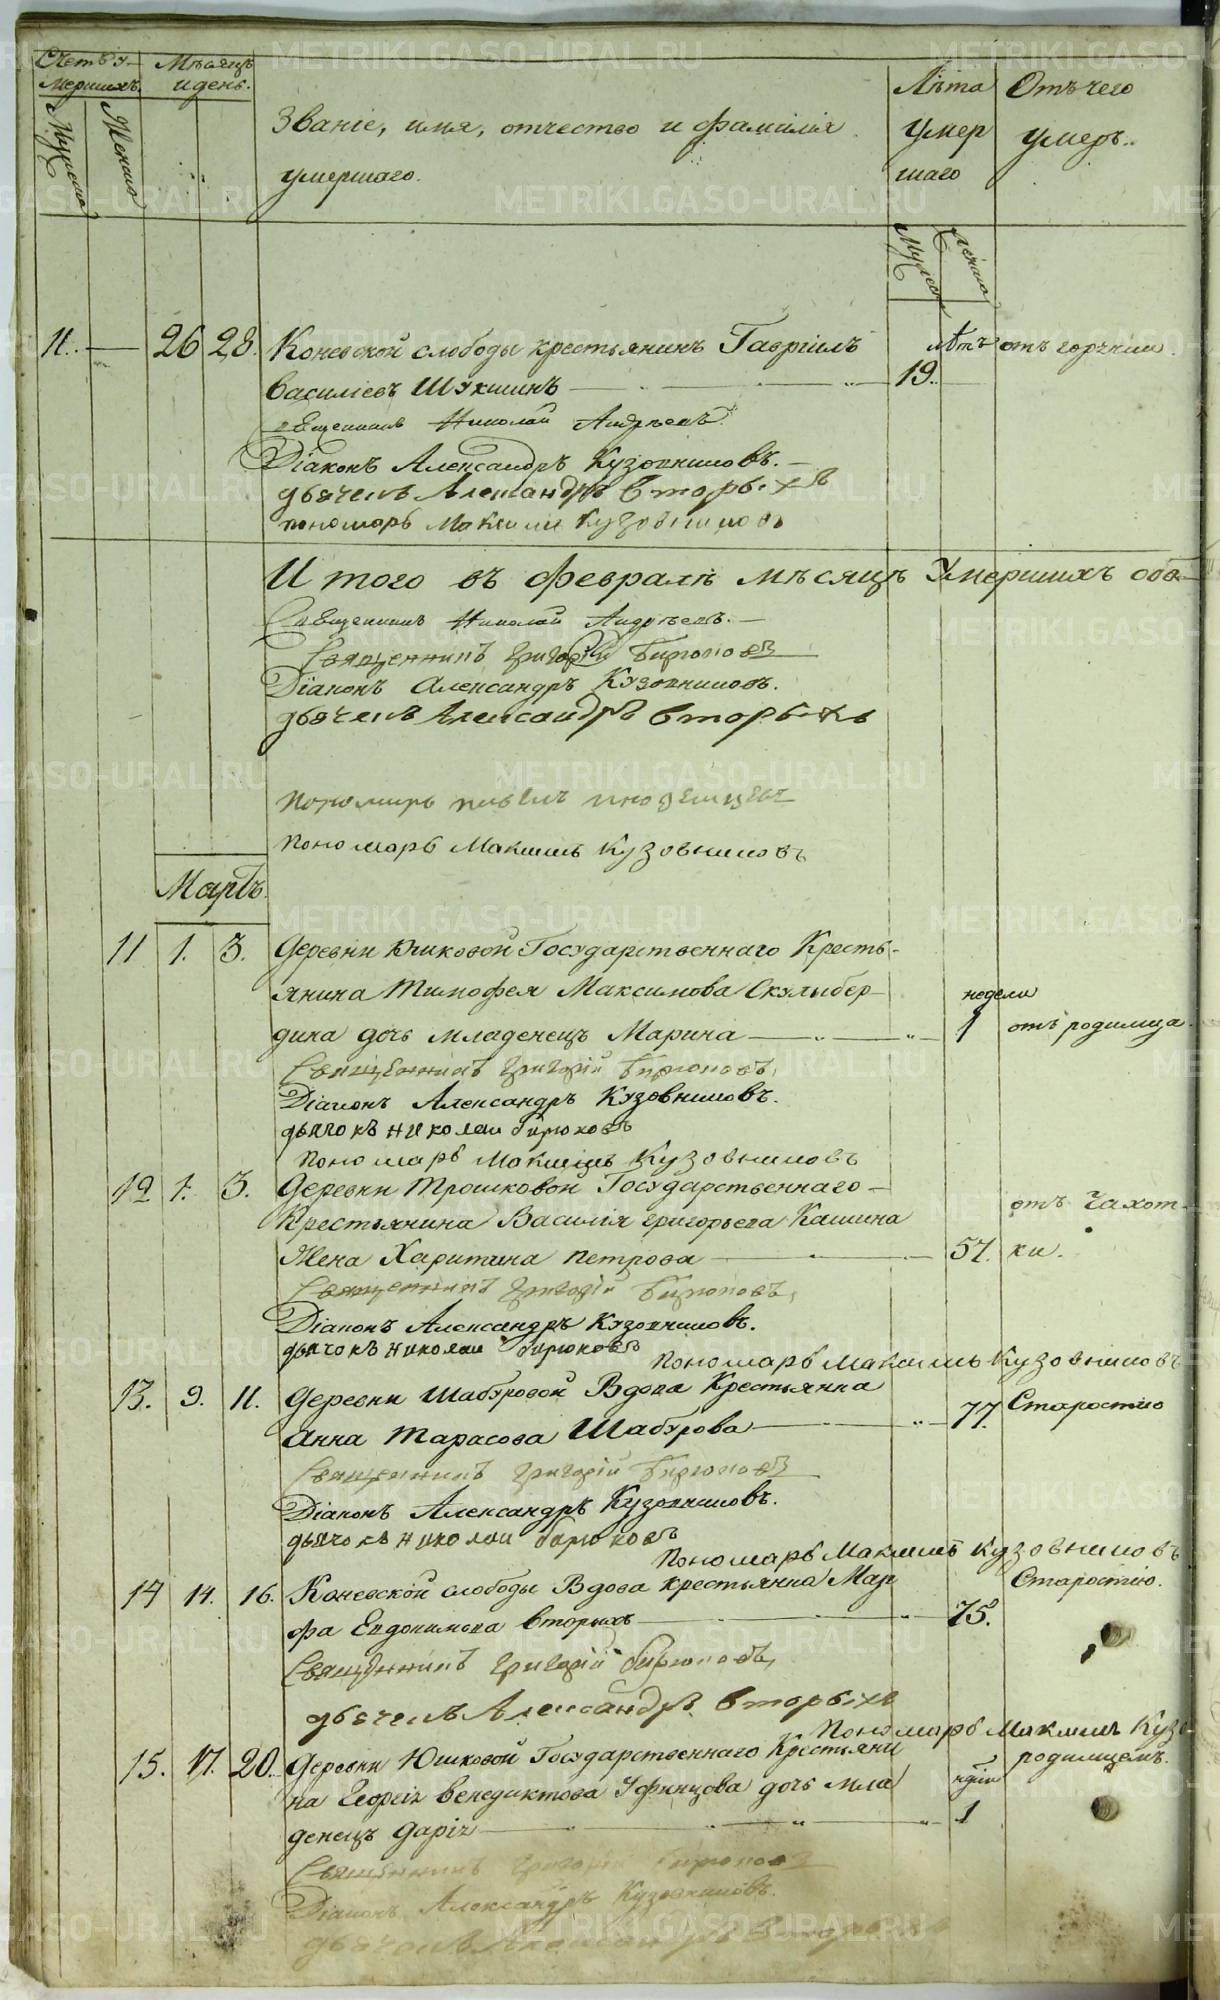 Счетъ у-
мершихъ.
Мѣсяцъ
и день.
Мужеска
Женска
Званіе, имя, отчество и фамилія
умершаго.
Лѣта
умер
шаго
Отъ чего
умеръ..
Мужеска
Женска
11. — 26 28. Коневской слободы крестьянинъ Гавріилъ лѣтъ отъ горячки.
Василіевъ Шукшинъ — 19.
Священникъ Николай Андрѣевъ.
Діаконъ Александръ Кузовниковъ. —
дьячекъ Александръ Вторыхъ
пономарь Максимъ Кузовниковъ
Итого въ февралѣ мѣсяцѣ умершихъ обо-
Священникъ Николай Андрѣевъ. —
Священникъ Григорій Бирюковъ
Діаконъ Александръ Кузовниковъ.
дьячекъ Александръ Вторыхъ
Пономарь
Пономарь Максимъ Кузовниковъ
Мартъ.
11 1. 3. Деревни Юшковой Государственнаго Кресть-
янина Тимофея Максимова Скулыбер- недели
дина дочь младенецъ Марина — 1 отъ родимца.
Священникъ Григорій Бирюковъ,
Діаконъ Александръ Кузовниковъ.
дьячокъ николаи бирюковъ
Пономарь Максимъ Кузовниковъ
12 1. 3. Деревни Трошковой Государственнаго —
Крестьянина Василія Григорьева Кашина отъ чахот-
Жена Харитина Петрова — 57. ки.
Священникъ Григорій Бирюковъ,
Діаконъ Александръ Кузовниковъ.
дьячокъ николаи бирюковъ
Пономарь Максимъ Кузовниковъ
13. 9. 11. Деревни Шабуровой Вдова Крестьянка
Анна Тарасова Шабурова — 77. Старостію
Священникъ Григорій Бирюковъ
Діаконъ Александръ Кузовниковъ.
дьячокъ николаи бирюковъ
Пономарь Максимъ Кузовниковъ
14 14. 16. Коневской слободы Вдова крестьянка Мар Старостію.
фа Евдокимова Вторыхъ — 75.
Священникъ Григорій Бирюковъ,
дьячекъ Александръ Вторыхъ
Пономарь Максимъ Кузо
15. 17. 20. Деревни Юшковой Государственнаго Крестьяни родимцемъ.
на Георгія Венедиктова Уфинцова дочь мла
денецъ Дарія — 1
Священникъ Григорій Бирюковъ
Діаконъ Александръ Кузовниковъ.
дьячекъ Александръ Вторыхъ
METRIKI.GASO-URAL.RU